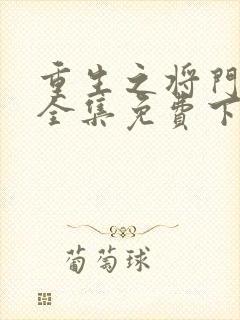 重生之将門
全集免費下
葡萄球